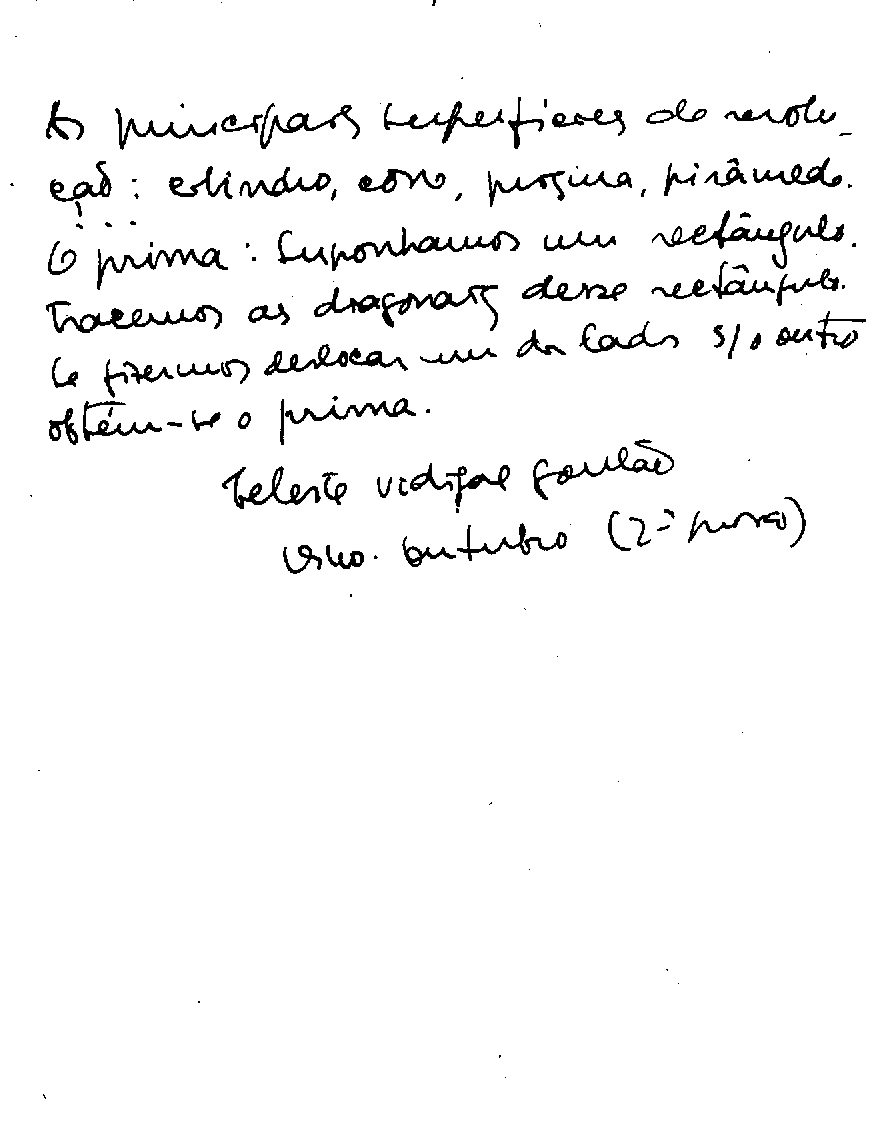 As principais superfícies de revolu-
ção: cilindro, cone, prisma, pirâmede.
O prima: Suponhamos um rectângulo.
Tracemos as diagonais desse rectângulo.
Se fizermos deslocar um dos lados s/ o outro
obtém-se o prima.
Celeste Vidigal
Outubro (2ª prova)